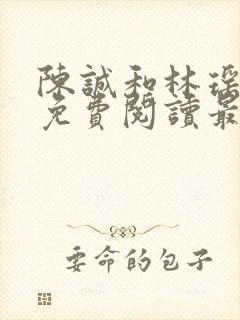 陳誠和林瑶
免費閱讀最
要命的包子